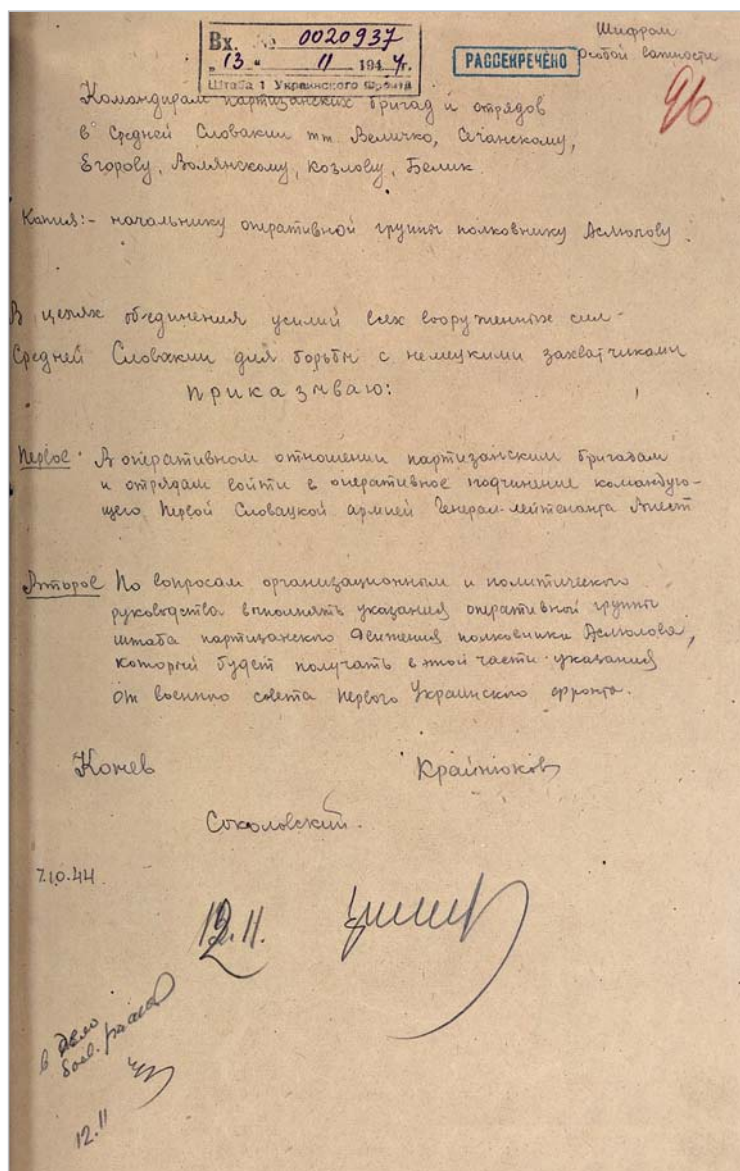 Шифром
Особой важности
Вх. № 0020937
„13“ 11 1944г.
Штаба 1 Украинского фронта
РАССЕКРЕЧЕНО
96
Командирам партизанских бригад и отрядов
в Средней Словакии тт Величко, Сечанскому,
Егорову, Волянскому, Козлову, Белик.
Копия:- начальнику оперативной группы полковнику Асмолову.
В целях объединения усилий всех вооруженных сил-
Средней Словакии для борьбы с немецкими захватчиками
приказываю:
Первое. В оперативном отношении партизанским бригадам
и отрядам войти в оперативное подчинение командую-
щего Первой Словацкой армией Генерал-лейтенанта Виест
Второе По вопросам организационным и политического
руководства выполнять указания оперативной группы
штаба партизанского движения полковника Асмолова,
который будет получать в этой части указания
от военного совета Первого Украинского фронта.
Конев Крайнюков
Соколовский.
7.10.44
12.11.
в дело
12.11